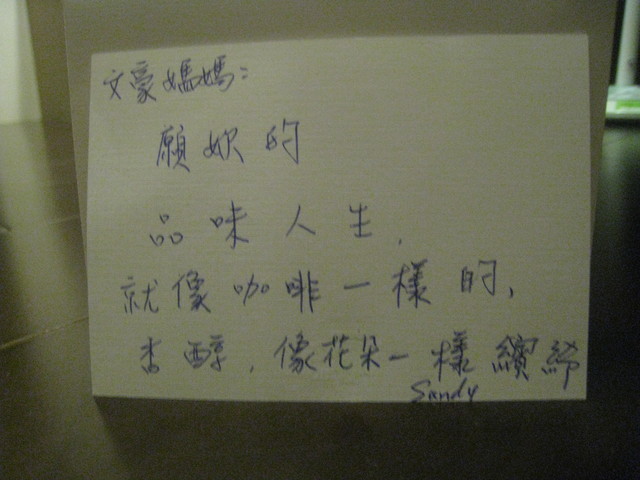 文豪媽媽：
願妳的
品味人生，
就像咖啡一樣的，
香醇，像花朵一樣繽紛
Sandy